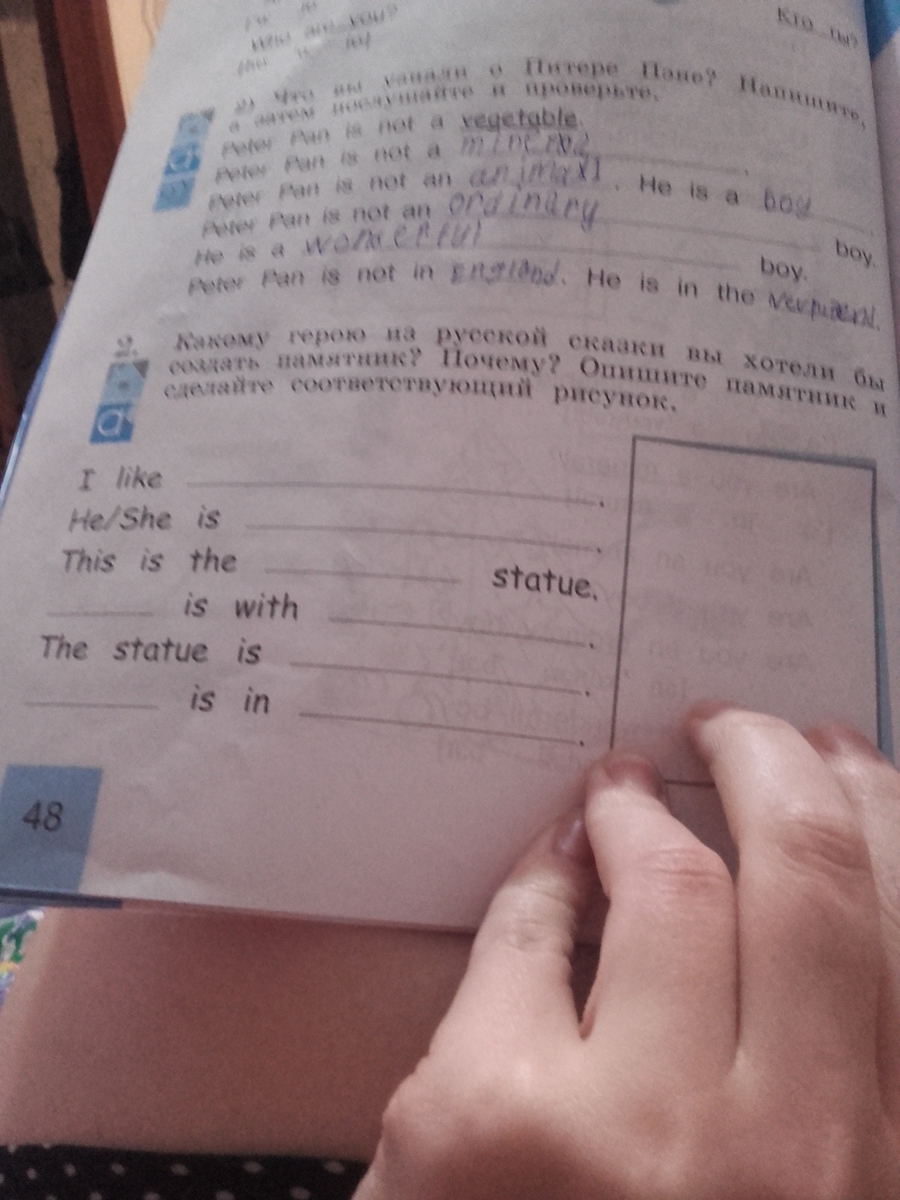 Who are you?
Кто ты?
2) Что вы узнали о Питере Пэне? Напишите,
а затем послушайте и проверьте.
Peter Pan is not a vegetable.
Peter Pan is not a mineral.
Peter Pan is not an animal. He is a boy.
Peter Pan is not an ordinary boy.
He is a wonderful boy.
Peter Pan is not in england. He is in the
2. Какому герою из русской сказки вы хотели бы
создать памятник? Почему? Опишите памятник и
сделайте соответствующий рисунок.
I like .
He/She is .
This is the statue.
is with .
The statue is .
is in .
48